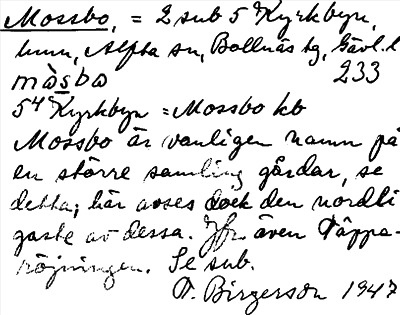 Mossbo, = 2 sub 5 Kyrkbyn,
hmn, Alfta sn, Bollnäs tg, Gävl. l
mòsbo 233
54 Kyrkbyn = Mossbo kb
Mossbo är vanligen namn på
en större samling gårdar, se
detta; här avses dock den nordli
gaste av dessa. Jfr. även Täppa-
röjningen. Se sub.
T. Birgerson 1947